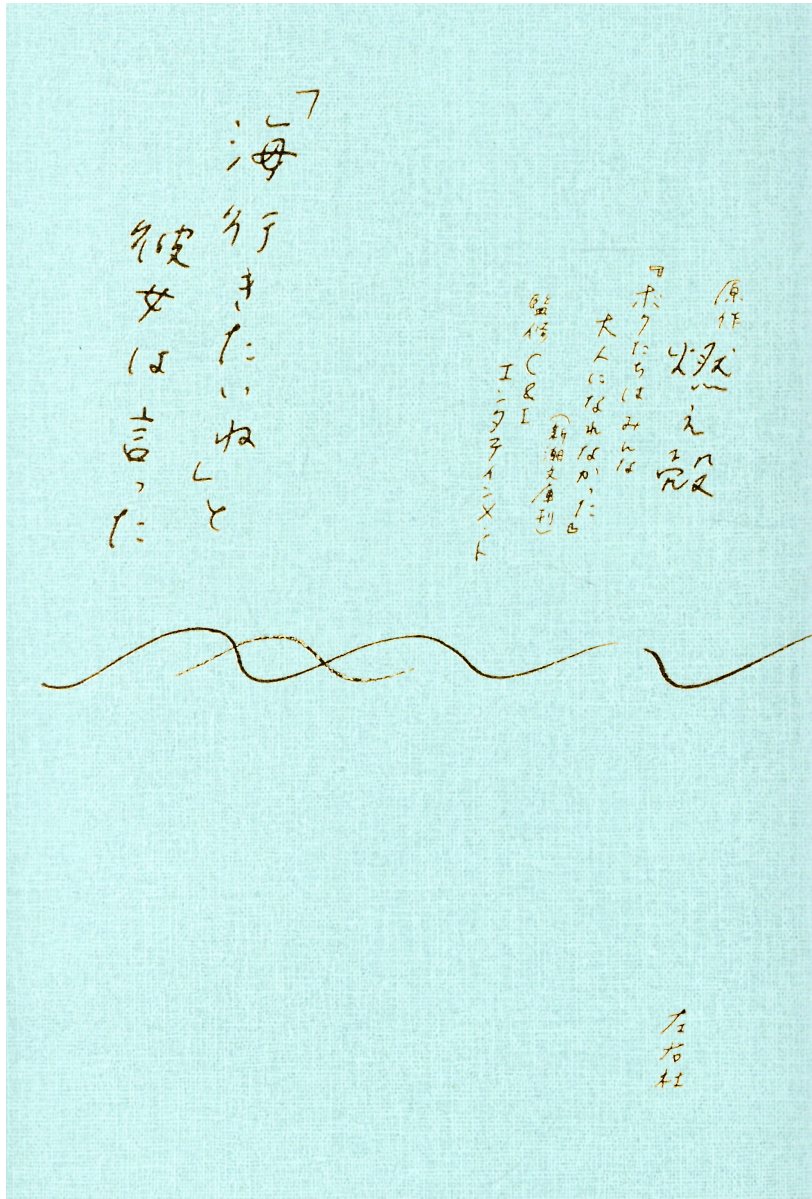 原作 燃え殻
『ボクたちはみんな
大人になれなかった』
(新潮文庫刊)
監修 C&I
エンタテインメント
「海行きたいね」と
彼女は言った
左右社